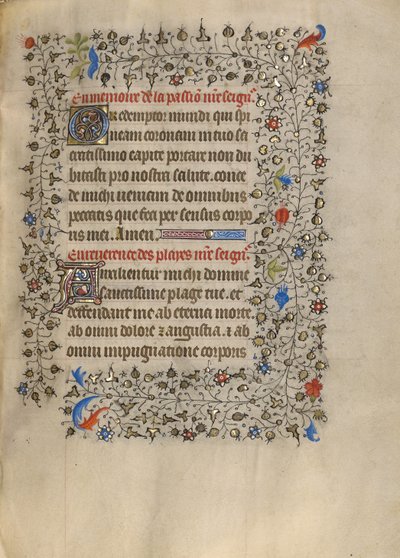 En memoire de la passiō nr̄e seignr̄
O redemptor mundi qui spi
neam coronam in tuo sa
centissimo capite portare non du
bitasti pro nostra salute. conce
de michi ueniam de omnibus
peccatis que feci per sensus corpo
ris mei. Amen.
En reuerence des playes nr̄e seignr̄
Auxilientur michi domine
sanctissime plage tue. et
deffendant me ab eterna morte
ab omni dolore & angustia. & ab
omni impugnatione corporis